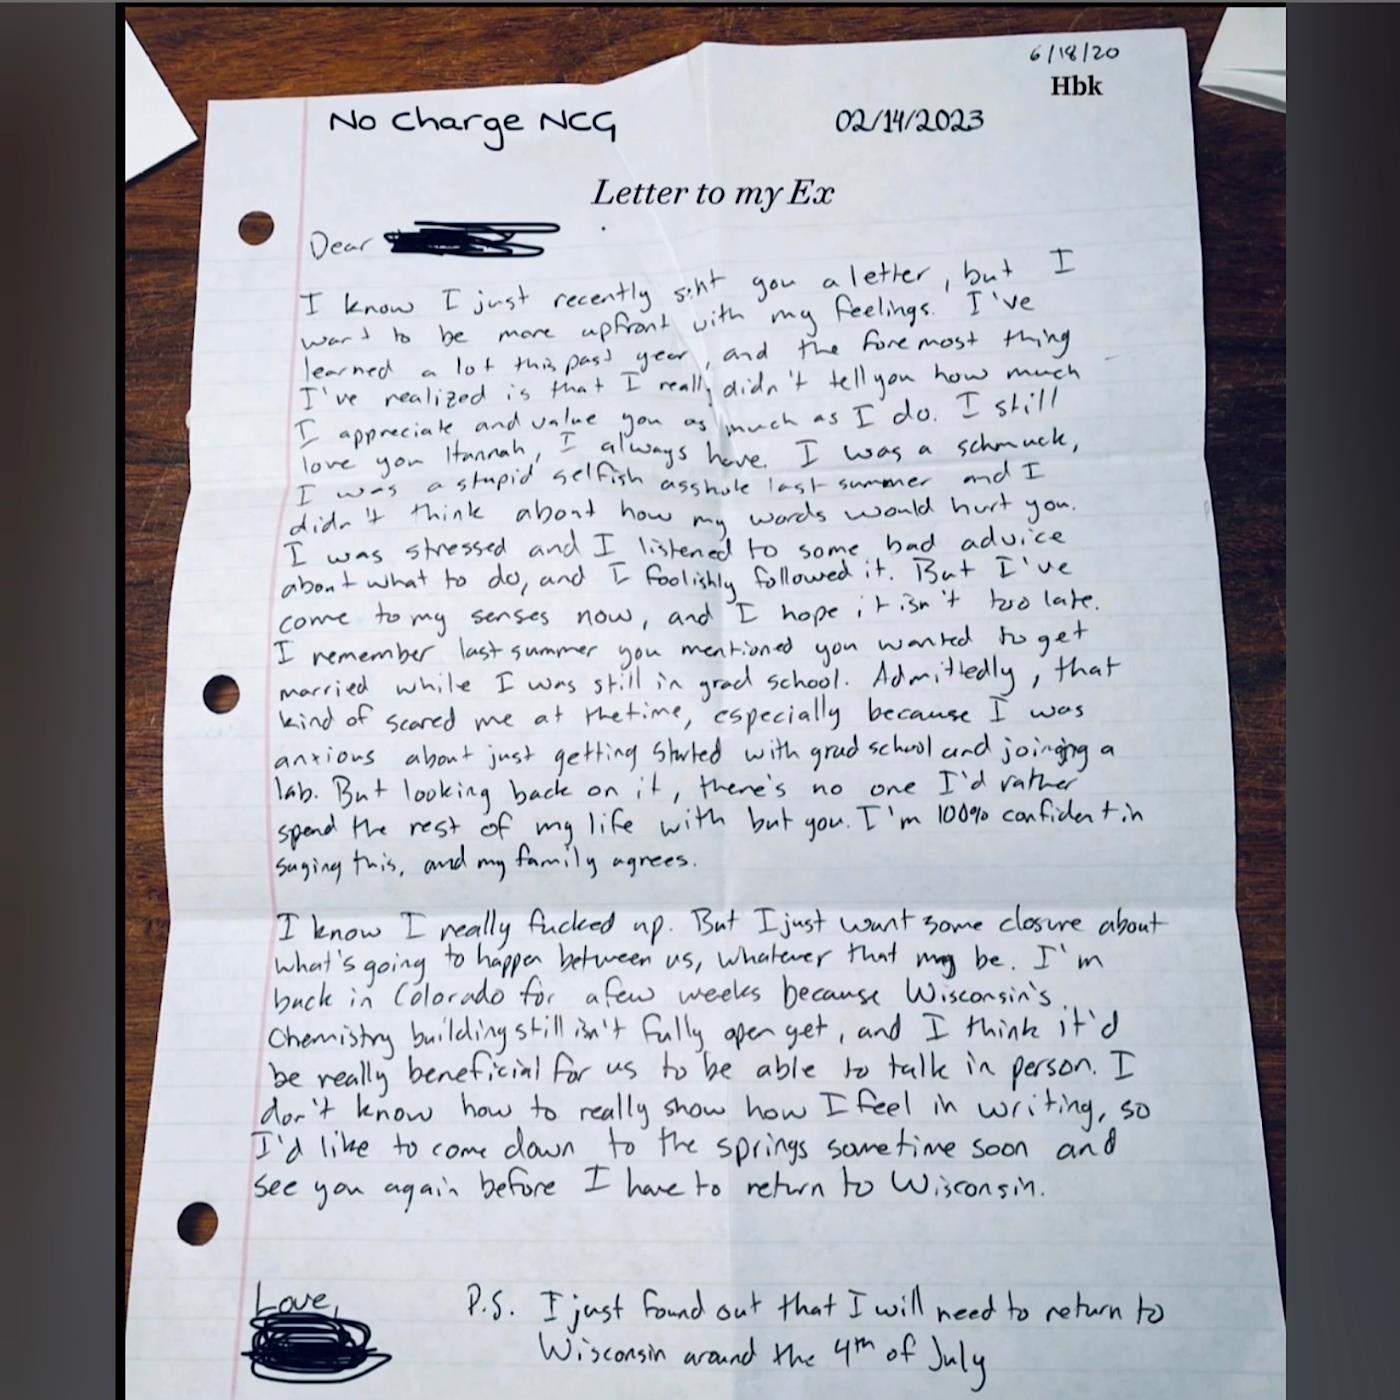 6/18/20
Hbk
No Charge NCG
02/14/2023
Letter to my Ex
Dear
I know I just recently sent you a letter, but I
want to be more upfront with my feelings. I've
learned a lot this past year, and the foremost thing
I've realized is that I really didn't tell you how much
I appreciate and value you as much as I do. I still
love you Hannah, I always have. I was a schmuck,
I was a stupid selfish asshole last summer and I
didn't think about how my words would hurt you.
I was stressed and I listened to some bad advice
about what to do, and I foolishly followed it. But I've
come to my senses now, and I hope it isn't too late.
I remember last summer you mentioned you wanted to get
married while I was still in grad school. Admittedly, that
kind of scared me at the time, especially because I was
anxious about just getting started with grad school and joining a
lab. But looking back on it, there's no one I'd rather
spend the rest of my life with but you. I'm 100% confident in
saying this, and my family agrees.
I know I really fucked up. But I just want some closure about
what's going to happen between us, whatever that may be. I'm
back in Colorado for a few weeks because Wisconsin's
Chemistry building still isn't fully open yet, and I think it'd
be really beneficial for us to be able to talk in person. I
don't know how to really show how I feel in writing, so
I'd like to come down to the springs sometime soon and
see you again before I have to return to Wisconsin.
Love,
P.S. I just found out that I will need to return to
Wisconsin around the 4th of July